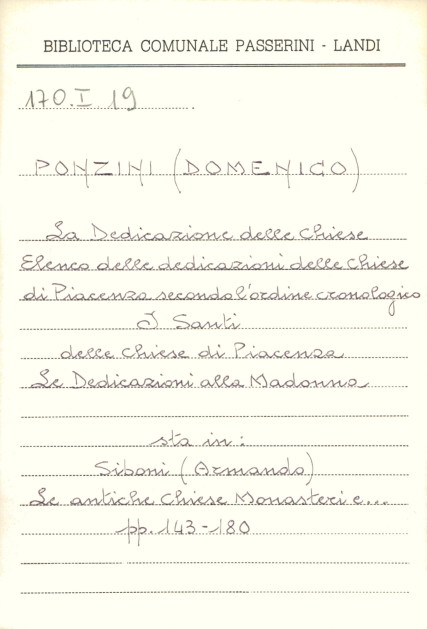 BIBLIOTECA COMUNALE PASSERINI - LANDI
170.I 19
PONZINI (DOMENICO)
La Dedicazione delle Chiese
Elenco delle dedicazioni delle Chiese
di Piacenza secondo l'ordine cronologico
I Santi
delle Chiese di Piacenza
Le Dedicazioni alla Madonna
sta in:
Siboni (Armando)
Le antiche Chiese Monasteri e...
pp. 143-180